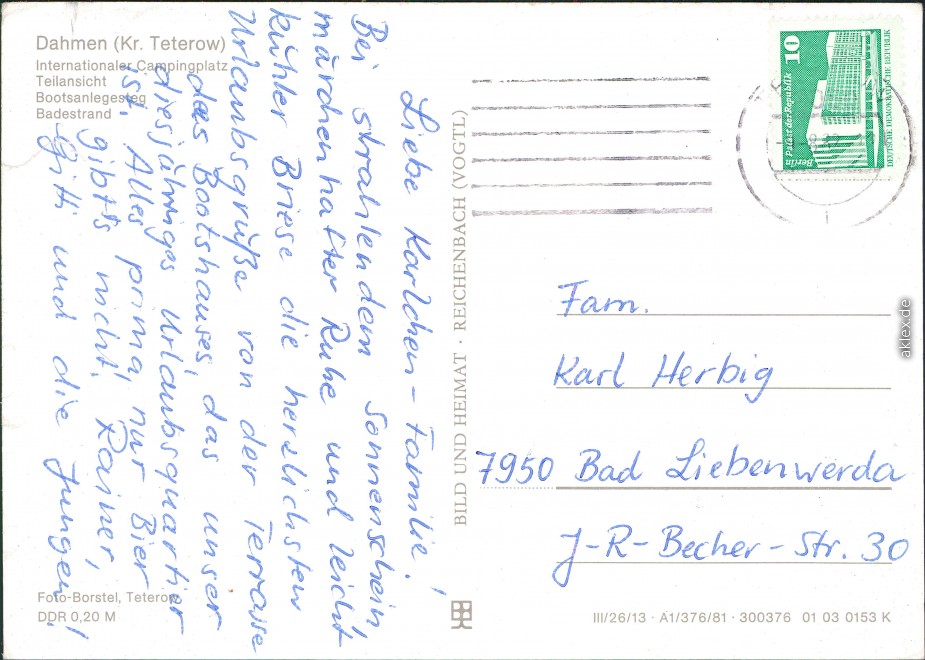 Dahmen (Kr. Teterow)
Internationaler Campingplatz
Teilansicht
Bootsanlegesteg
Badestrand
Liebe Karlchen-Familie!
Bei strahlendem Sonnenschein
märchenhafter Ruhe und leicht
kühler Briese die herzlichsten
Urlaubsgrüße von der Terrasse
des Bootshauses, das unser
diesjähriges Urlaubsquartier
ist. Alles prima, nur Bier
gibts nicht! Rainer,
Gitti und die Jungen!
Foto-Borstel, Teterow
DDR 0,20 M
BILD UND HEIMAT · REICHENBACH (VOGTL)
10
Berlin Palast der Republik
DEUTSCHE DEMOKRATISCHE REPUBLIK
Fam.
Karl Herbig
7950 Bad Liebenwerda
J-R-Becher-Str. 30
III/26/13 · A1/376/81 · 300376 01 03 0153 K
aklex.de